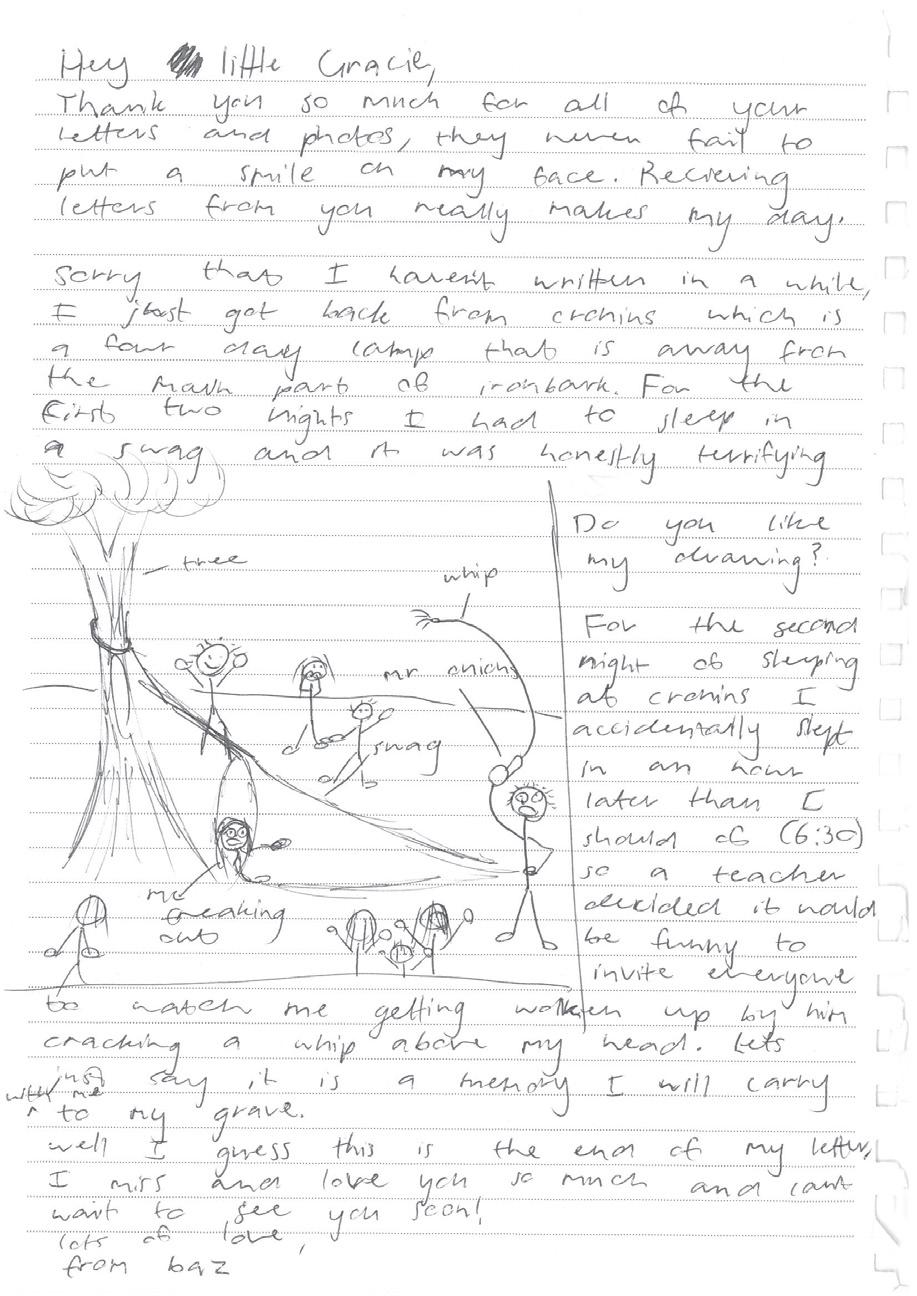 Hey little Gracie,
Thank you so much for all of your
letters and photos, they never fail to
put a smile on my face. Recieving
letters from you really makes my day.
Sorry that I haven't written in a while,
I just got back from cronins which is
a four day camp that is away from
the main part of ironbark. For the
first two nights I had to sleep in
a swag and it was honestly terrifying
tree
whip
mr onions
swag
me
freaking
out
Do you like
my drawing?
For the second
night of sleeping
at cronins I
accidentally slept
in an hour
later than I
should of (6:30)
so a teacher
decided it would
be funny to
invite everyone
to watch me getting woken up by him
cracking a whip above my head. Lets
just say it is a memory I will carry
with me
to my grave.
well I guess this is the end of my letter,
I miss and love you so much and cant
wait to see you soon!
lots of love,
from baz